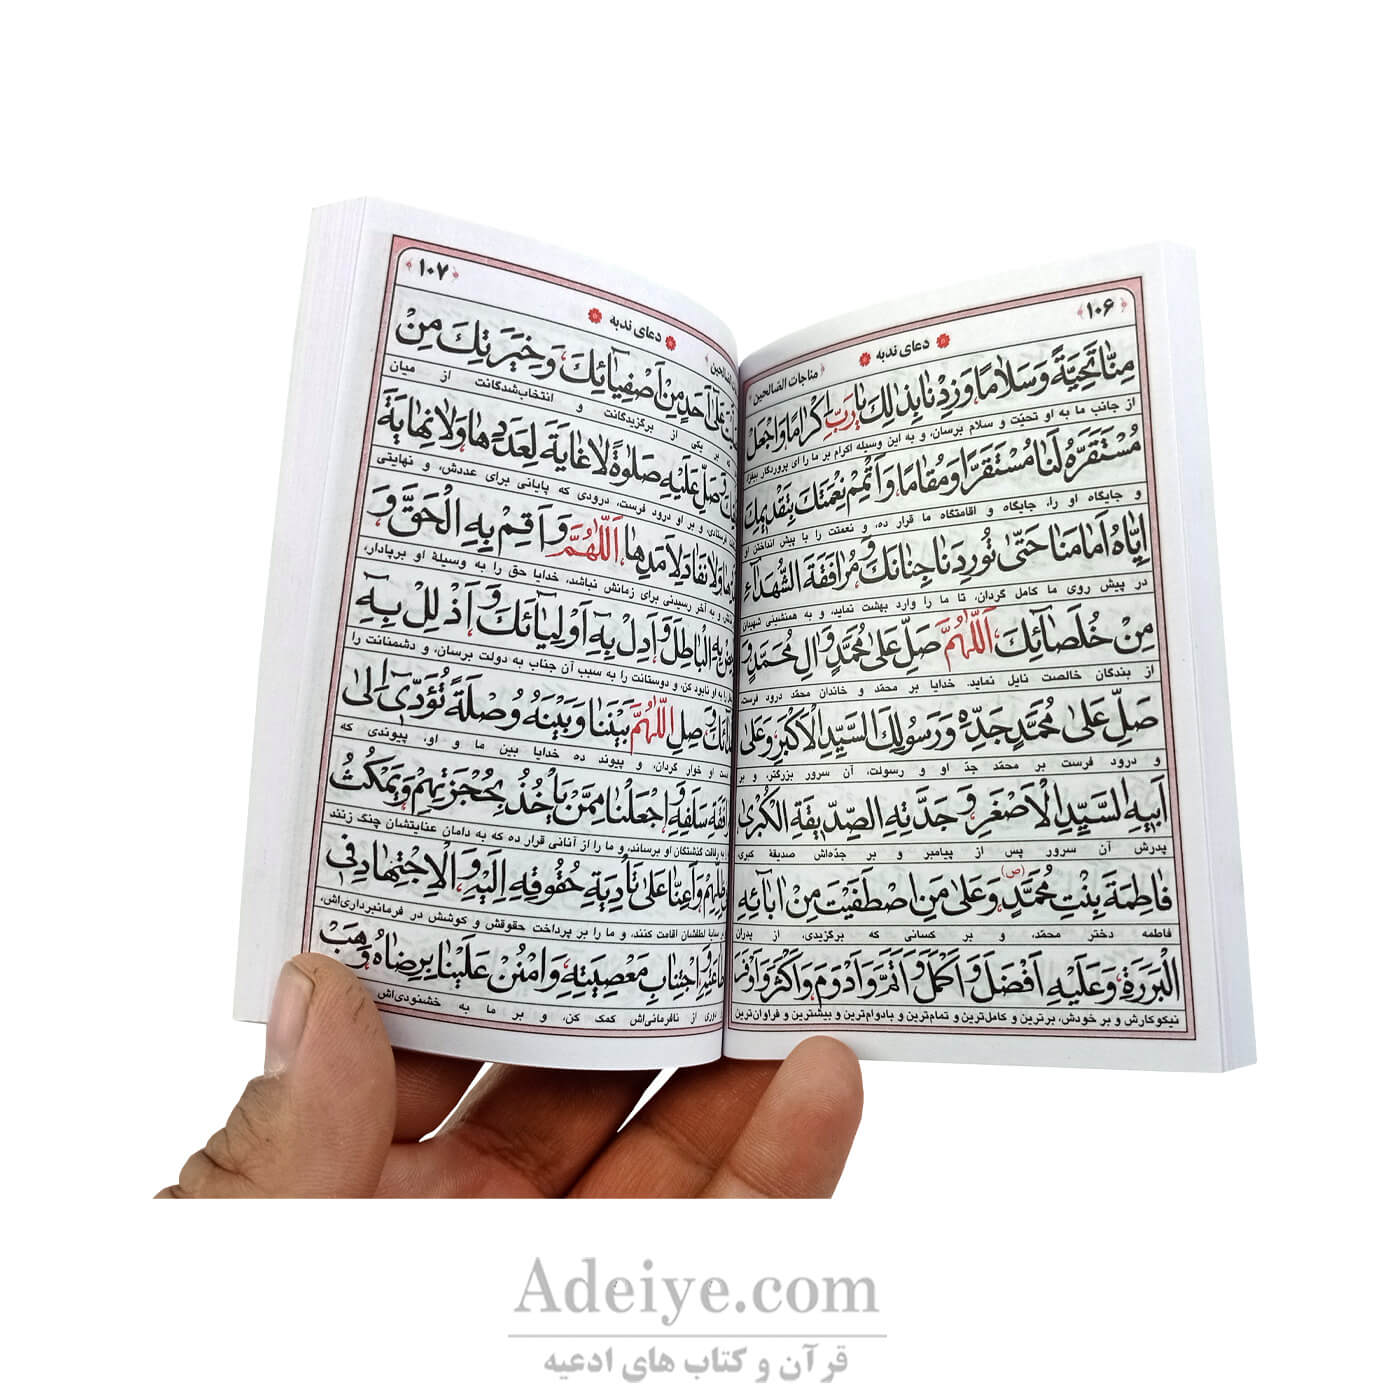 ﴿۱۰۶﴾
دعای ندبه
﴿مناجات الصالحین﴾
مِنّٰا تَحِیَّةً وَسَلٰامًا وَزِدْنٰا بِذٰلِکَ یٰا رَبِّ اِکْرٰامًا وَاجْعَلْ
از جانب ما به او تحیّت و سلام برسان، و به این وسیله اکرام بر ما را ای پروردگار بیفزا،
مُسْتَقَرَّهُ لَنٰا مُسْتَقَرًّا وَمُقٰامًا، وَاَتْمِمْ نِعْمَتَکَ بِتَقْدیمِکَ
و جایگاه او را، جایگاه و اقامتگاه ما قرار ده، و نعمتت را با پیش انداختن او
اِیّٰاهُ اَمٰامَنٰا حَتّیٰ تُورِدَنٰا جِنٰانَکَ وَ مُرٰافَقَةَ الشُّهَدٰآءِ
در پیش روی ما کامل گردان، تا ما را وارد بهشت نماید، و به همنشینی شهیدان
مِنْ خُلَصٰآئِکَ، اَللّٰهُمَّ صَلِّ عَلیٰ مُحَمَّدٍ وَ اٰلِ مُحَمَّدٍ وَ
از بندگان خالصت نایل نماید. خدایا بر محمّد و خاندان محمّد درود فرست
صَلِّ عَلیٰ مُحَمَّدٍ جَدِّهِ وَ رَسُولِکَ السَّیِّدِ الْاَکْبَرِ، وَعَلیٰ
و درود فرست بر محمّد جدّ او و رسولت، آن سرور بزرگتر، و بر
اَبیهِ السَّیِّدِ الْاَصْغَرِ، وَ جَدَّتِهِ الصِّدّیقَةِ الْکُبْریٰ
پدرش آن سرور پس از پیامبر و بر جدّه‌اش صدیقهٔ کبری
فٰاطِمَةَ بِنْتِ مُحَمَّدٍ (ص) وَ عَلیٰ مَنِ اصْطَفَیْتَ مِنْ اٰبٰآئِهِ
فاطمه دختر محمّد، و بر کسانی که برگزیدی، از پدران
الْبَرَرَةِ، وَعَلَیْهِ اَفْضَلَ وَ اَکْمَلَ وَ اَتَمَّ وَ اَدْوَمَ وَ اَکْثَرَ وَ اَوْفَرَ
نیکوکارش و بر خودش، برترین و کامل‌ترین و تمام‌ترین و بادوام‌ترین و بیشترین و فراوان‌ترین
﴿۱۰۷﴾
دعای ندبه
عَلیٰ اَحَدٍ مِنْ اَصْفِیٰآئِکَ، وَ خِیَرَتِکَ مِنْ
که بر یکی از برگزیدگانت و انتخاب‌شدگانت از میان
صَلِّ عَلَیْهِ صَلٰوةً لٰا غٰایَةَ لِعَدَدِهٰا، وَلٰا نِهٰایَةَ
فرستادی، و بر او درود فرست، درودی که پایانی برای عددش، و نهایتی
وَلٰا نَفٰادَ لِاَمَدِهٰا، اَللّٰهُمَّ وَ اَقِمْ بِهِ الْحَقَّ وَ
و به آخر رسیدنی برای زمانش نباشد، خدایا حق را به وسیلهٔ او برپادار،
بِهِ الْبٰاطِلَ وَ اَدِلْ بِهِ اَوْلِیٰآئَکَ وَ اَذْلِلْ بِهِ
را به او نابود کن، و دوستانت را به سبب آن جناب به دولت برسان، و دشمنانت را
وَ صِلِ اللّٰهُمَّ بَیْنَنٰا وَ بَیْنَهُ وُصْلَةً تُؤَدّی اِلیٰ
او خوار گردان، و پیوند ده خدایا بین ما و او، پیوندی که
سَلَفِهِ، وَ اجْعَلْنٰا مِمَّنْ یَأْخُذُ بِحُجْزَتِهِمْ، وَ یَمْکُثُ
به رفاقت گذشتگان او برساند، و ما را از آنانی قرار ده که به دامان عنایتشان چنگ زنند
وَ اَعِنّٰا عَلیٰ تَأْدِیَةِ حُقُوقِهِ اِلَیْهِ، وَ الْاِجْتِهٰادِ فی
سایهٔ لطفشان اقامت کنند، و ما را بر پرداخت حقوقش و کوشش در فرمانبرداری‌اش،
وَ اجْتِنٰابِ مَعْصِیَتِهِ، وَ امْنُنْ عَلَیْنٰا بِرِضٰاهُ، وَ هَبْ
دوری از نافرمانی‌اش کمک کن، و بر ما به خشنودی‌اش
Adeiye.com
قرآن و کتاب های ادعیه